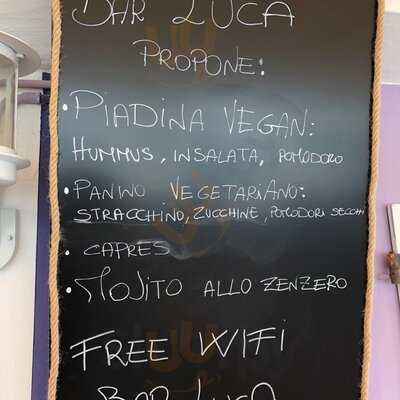 BAR LUCA
PROPONE:
• PIADINA VEGAN:
HUMMUS, INSALATA, POMODORO
• PANINO VEGETARIANO:
STRACCHINO, ZUCCHINE, POMODORI SECCHI
• CAPRES
• MOJITO ALLO ZENZERO
FREE WIFI
BAR LUCA